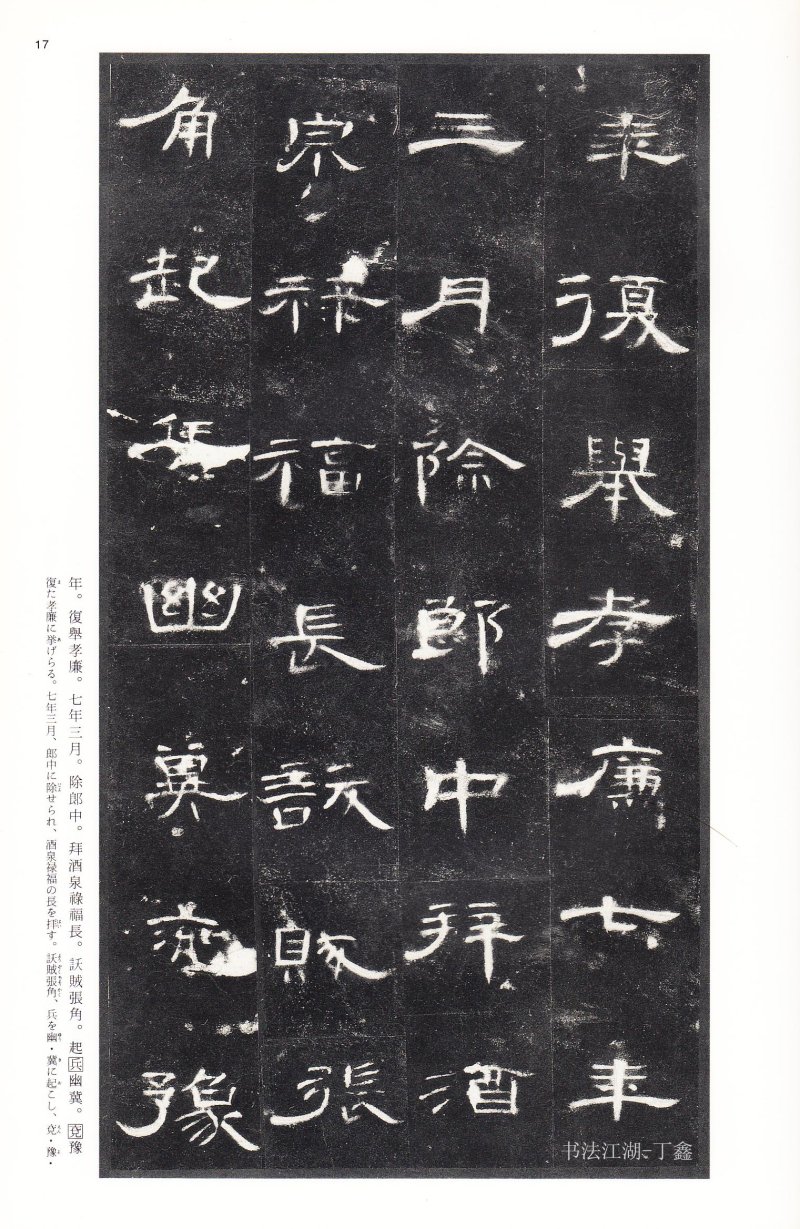 17
年復舉孝廉七年
三月除郎中拜酒
泉祿福長訞賊張
角起兵幽冀兗豫
年。復舉孝廉。七年三月。除郎中。拜酒泉祿福長。訞賊張角。起兵幽冀。兗豫
復た孝廉に挙げらる。七年三月、郎中に除せられ、酒泉禄福の長を拝す。訞賊張角、兵を幽・冀に起こし、兗・豫・
书法江湖-丁鑫